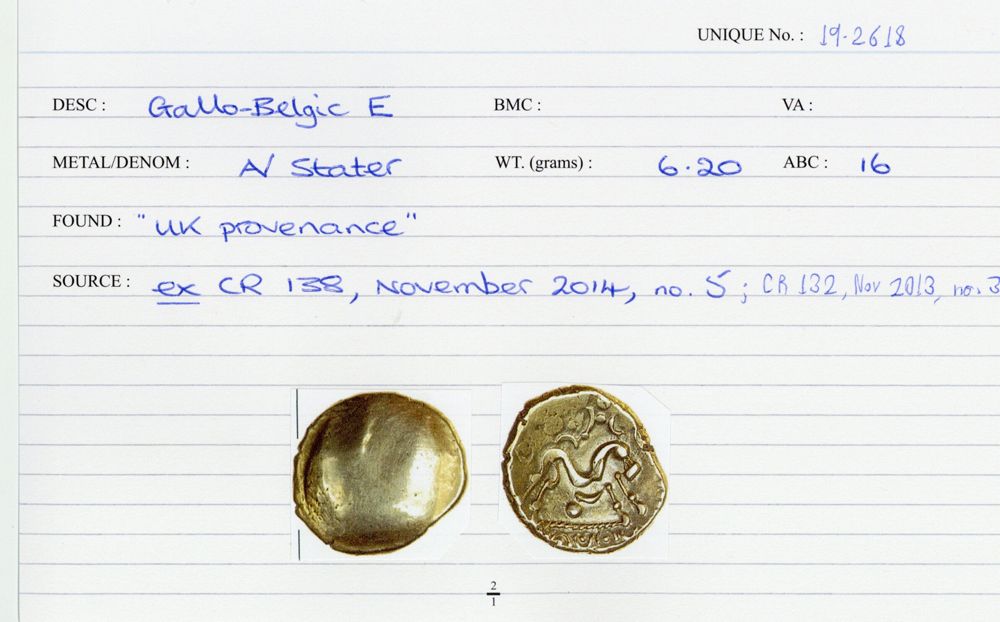 UNIQUE No. : 19-2618
DESC : Gallo-Belgic E BMC : VA :
METAL/DENOM : A/ Stater WT. (grams) : 6.20 ABC : 16
FOUND : "UK provenance"
SOURCE : ex CR 138, November 2014, no. 5 ; CR 132, Nov 2013, no. 3
2
1